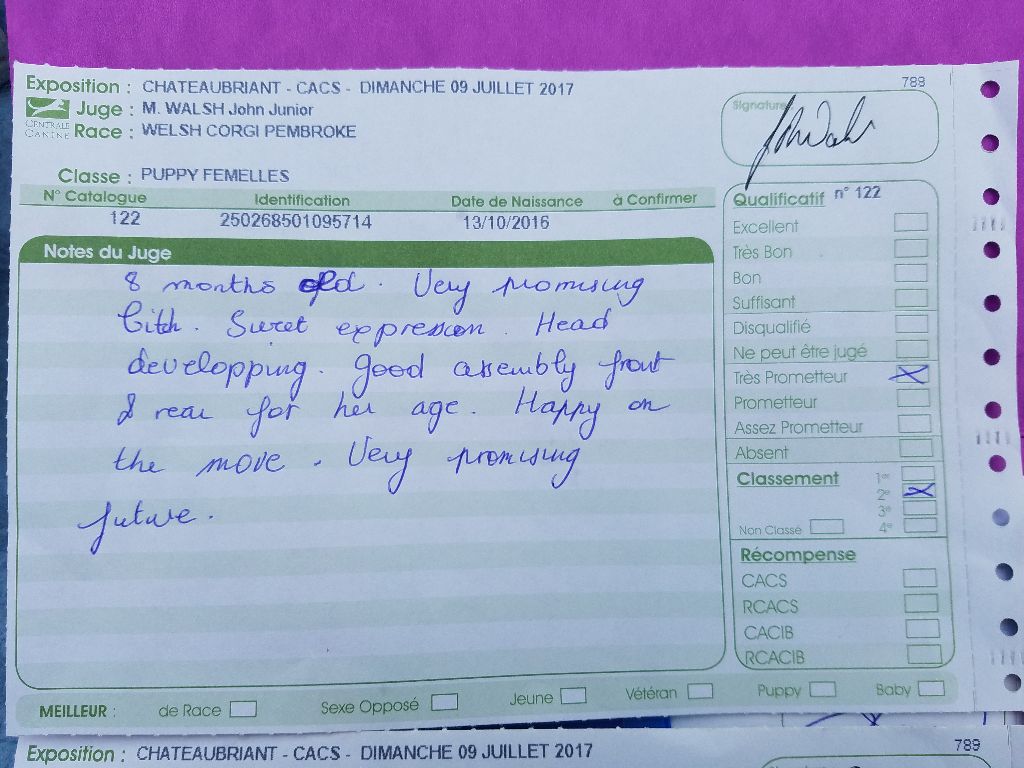 Exposition : CHATEAUBRIANT - CACS - DIMANCHE 09 JUILLET 2017
789
Juge : M. WALSH John Junior
CENTRALE CANINE
Race : WELSH CORGI PEMBROKE
Signature
Classe : PUPPY FEMELLES
N° Catalogue Identification Date de Naissance à Confirmer
122 250268501095714 13/10/2016
Notes du Juge
8 months old. Very promising
bitch. Sweet expression. Head
developping. Good assembly front
& rear for her age. Happy on
the move. Very promising
future.
Qualificatif n° 122
Excellent
Très Bon
Bon
Suffisant
Disqualifié
Ne peut être jugé
Très Prometteur
Prometteur
Assez Prometteur
Absent
Classement 1er
2e
3e
Non Classé 4e
Récompense
CACS
RCACS
CACIB
RCACIB
MEILLEUR : de Race Sexe Opposé Jeune Vétéran Puppy Baby
Exposition : CHATEAUBRIANT - CACS - DIMANCHE 09 JUILLET 2017
789